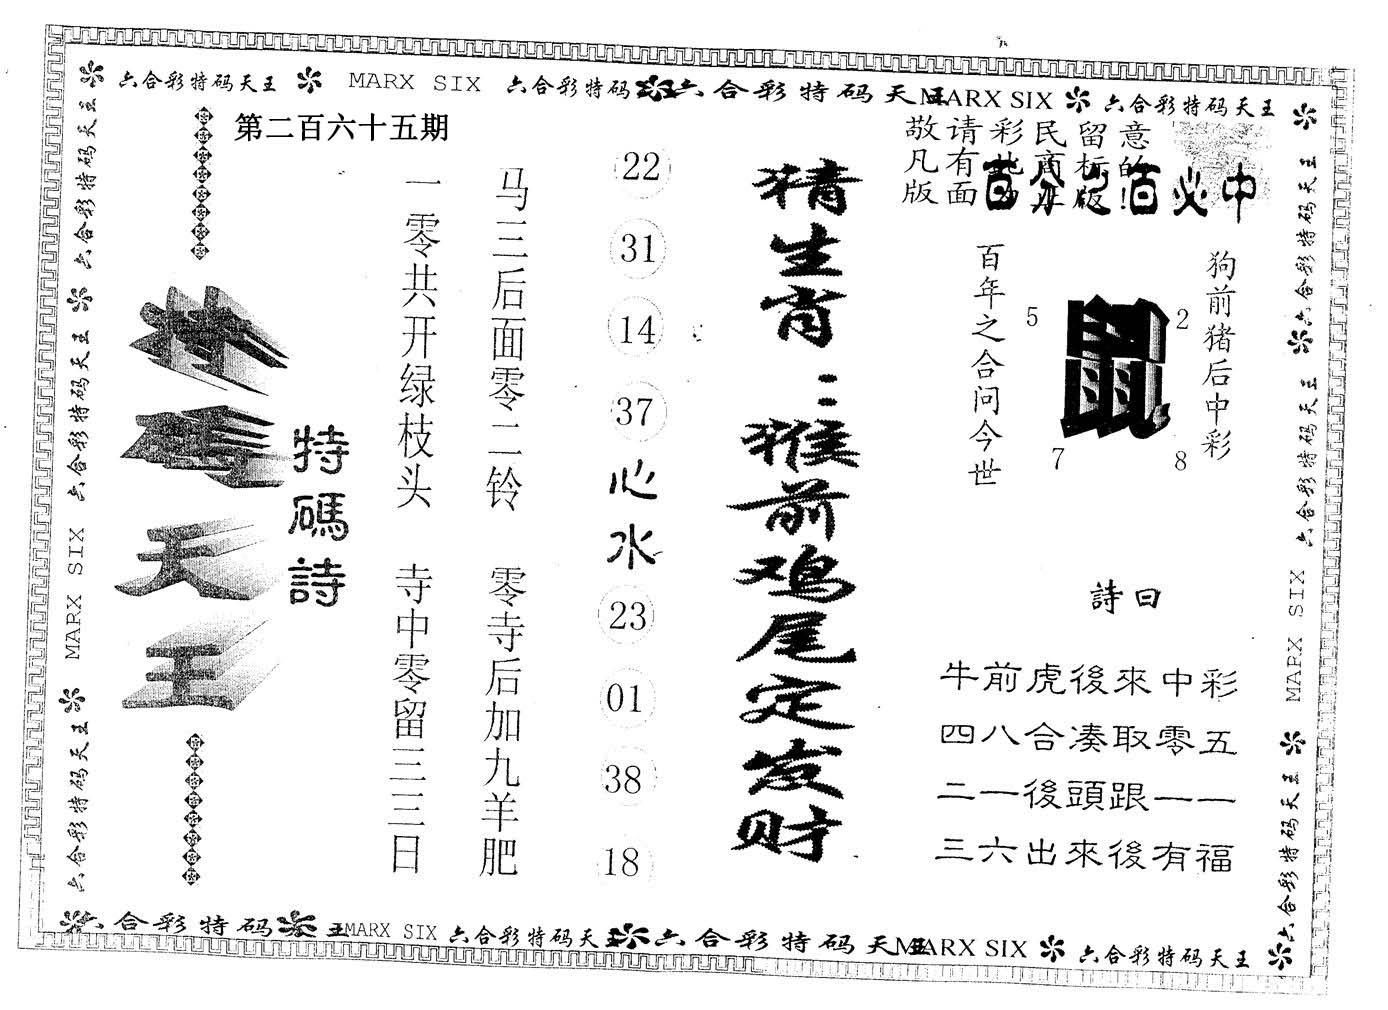 六合彩特码天王 MARX SIX 六合彩特码 六合彩特码天王 MARX SIX 六合彩特码天王
第二百六十五期
敬请彩民留意
凡有此商标的
版面为正版!
百分之百必中
特碼詩
一零共开绿枝头 寺中零留三三日
马三后面零二铃 零寺后加九羊肥
22
31
14
37
心水
23
01
38
18
猜生肖:猴前鸡尾定发财
百年之合问今世
5
鼠
2
7
8
狗前猪后中彩
詩曰
牛前虎後來中彩
四八合凑取零五
二一後頭跟一一
三六出來後有福
六合彩特码天王 六合彩特码天王 MARX SIX 六合彩特码天王
六合彩特码天王 六合彩特码天王 MARX SIX 六合彩特码天王
六合彩特码天王 MARX SIX 六合彩特码天王 六合彩特码天王 MARX SIX 六合彩特码天王